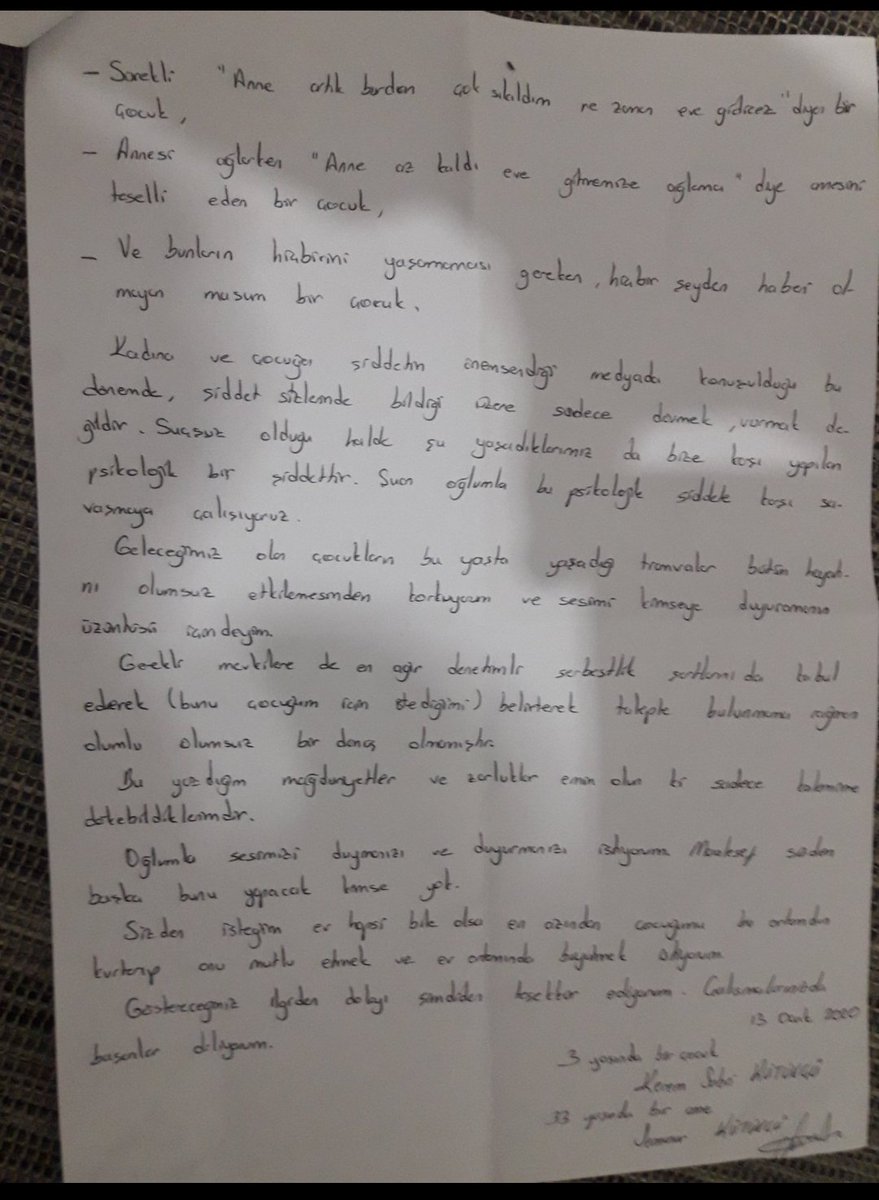 – Sürekli "Anne artık burdan çok sıkıldım ne zaman eve gidicez" diyen bir
çocuk,
– Annesi ağlarken "Anne az kaldı eve gitmemize ağlama" diye annesini
teselli eden bir çocuk,
– Ve bunların hiçbirini yaşamaması gereken, hiçbir şeyden haberi ol
mayan masum bir çocuk.
Kadına ve çocuğa şiddetin önemsendiği medyada konuşulduğu bu
dönemde, şiddet sizlerinde bildiği üzere sadece dövmek, vurmak de-
ğildir. Suçsuz olduğu halde şu yaşadıklarımız da bize karşı yapılan
psikolojik bir şiddettir. Şuan oğlumla bu psikolojik şiddete karşı sa-
vaşmaya çalışıyoruz.
Geleceğimiz olan çocukların bu yaşta yaşadığı tramvalar bütün hayatı-
nı olumsuz etkilemesinden korkuyorum ve sesimi kimseye duyuramamanın
üzüntüsü içindeyim.
Gerekli merkilere de en ağır denetimli serbestlik şartlarını da kabul
ederek (bunu çocuğum için istediğimi) belirterek talepte bulunmama rağmen
olumlu olumsuz bir dönüş olmamıştır.
Bu yazdığım mağduriyetler ve zorluklar emin olun ki sadece kalemime
dökebildiklerimdir.
Oğlumla sesimizi duymanızı ve duyurmanızı istiyorum. Maalesef sizden
başka bunu yapacak kimse yok.
Sizden isteğim ev hapsi bile olsa en azından çocuğumu bu ortamdan
kurtarıp onu mutlu etmek ve ev ortamında büyütmek istiyorum.
Göstereceğiniz ilgiden dolayı şimdiden teşekkür ediyorum. Çalışmalarınızda
13 Ocak 2020
başarılar diliyorum.
3 yaşında bir çocuk
Kerem Sabri KÜTÜKÇÜ
33 yaşında bir anne
KÜTÜKÇÜ